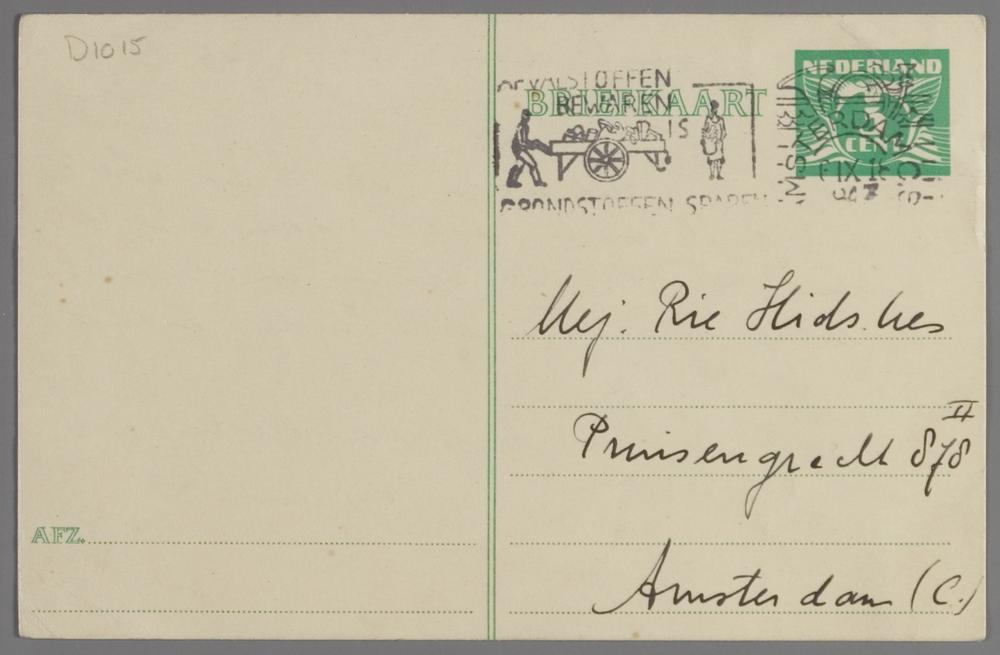 D1015
AFVALSTOFFEN
BEWAREN
IS
GRONDSTOFFEN SPAREN
BRIEFKAART
NEDERLAND
CENT
Mej. Rie Hids.hes
Prinsengracht 878 II
Amsterdam (C.)
AFZ.